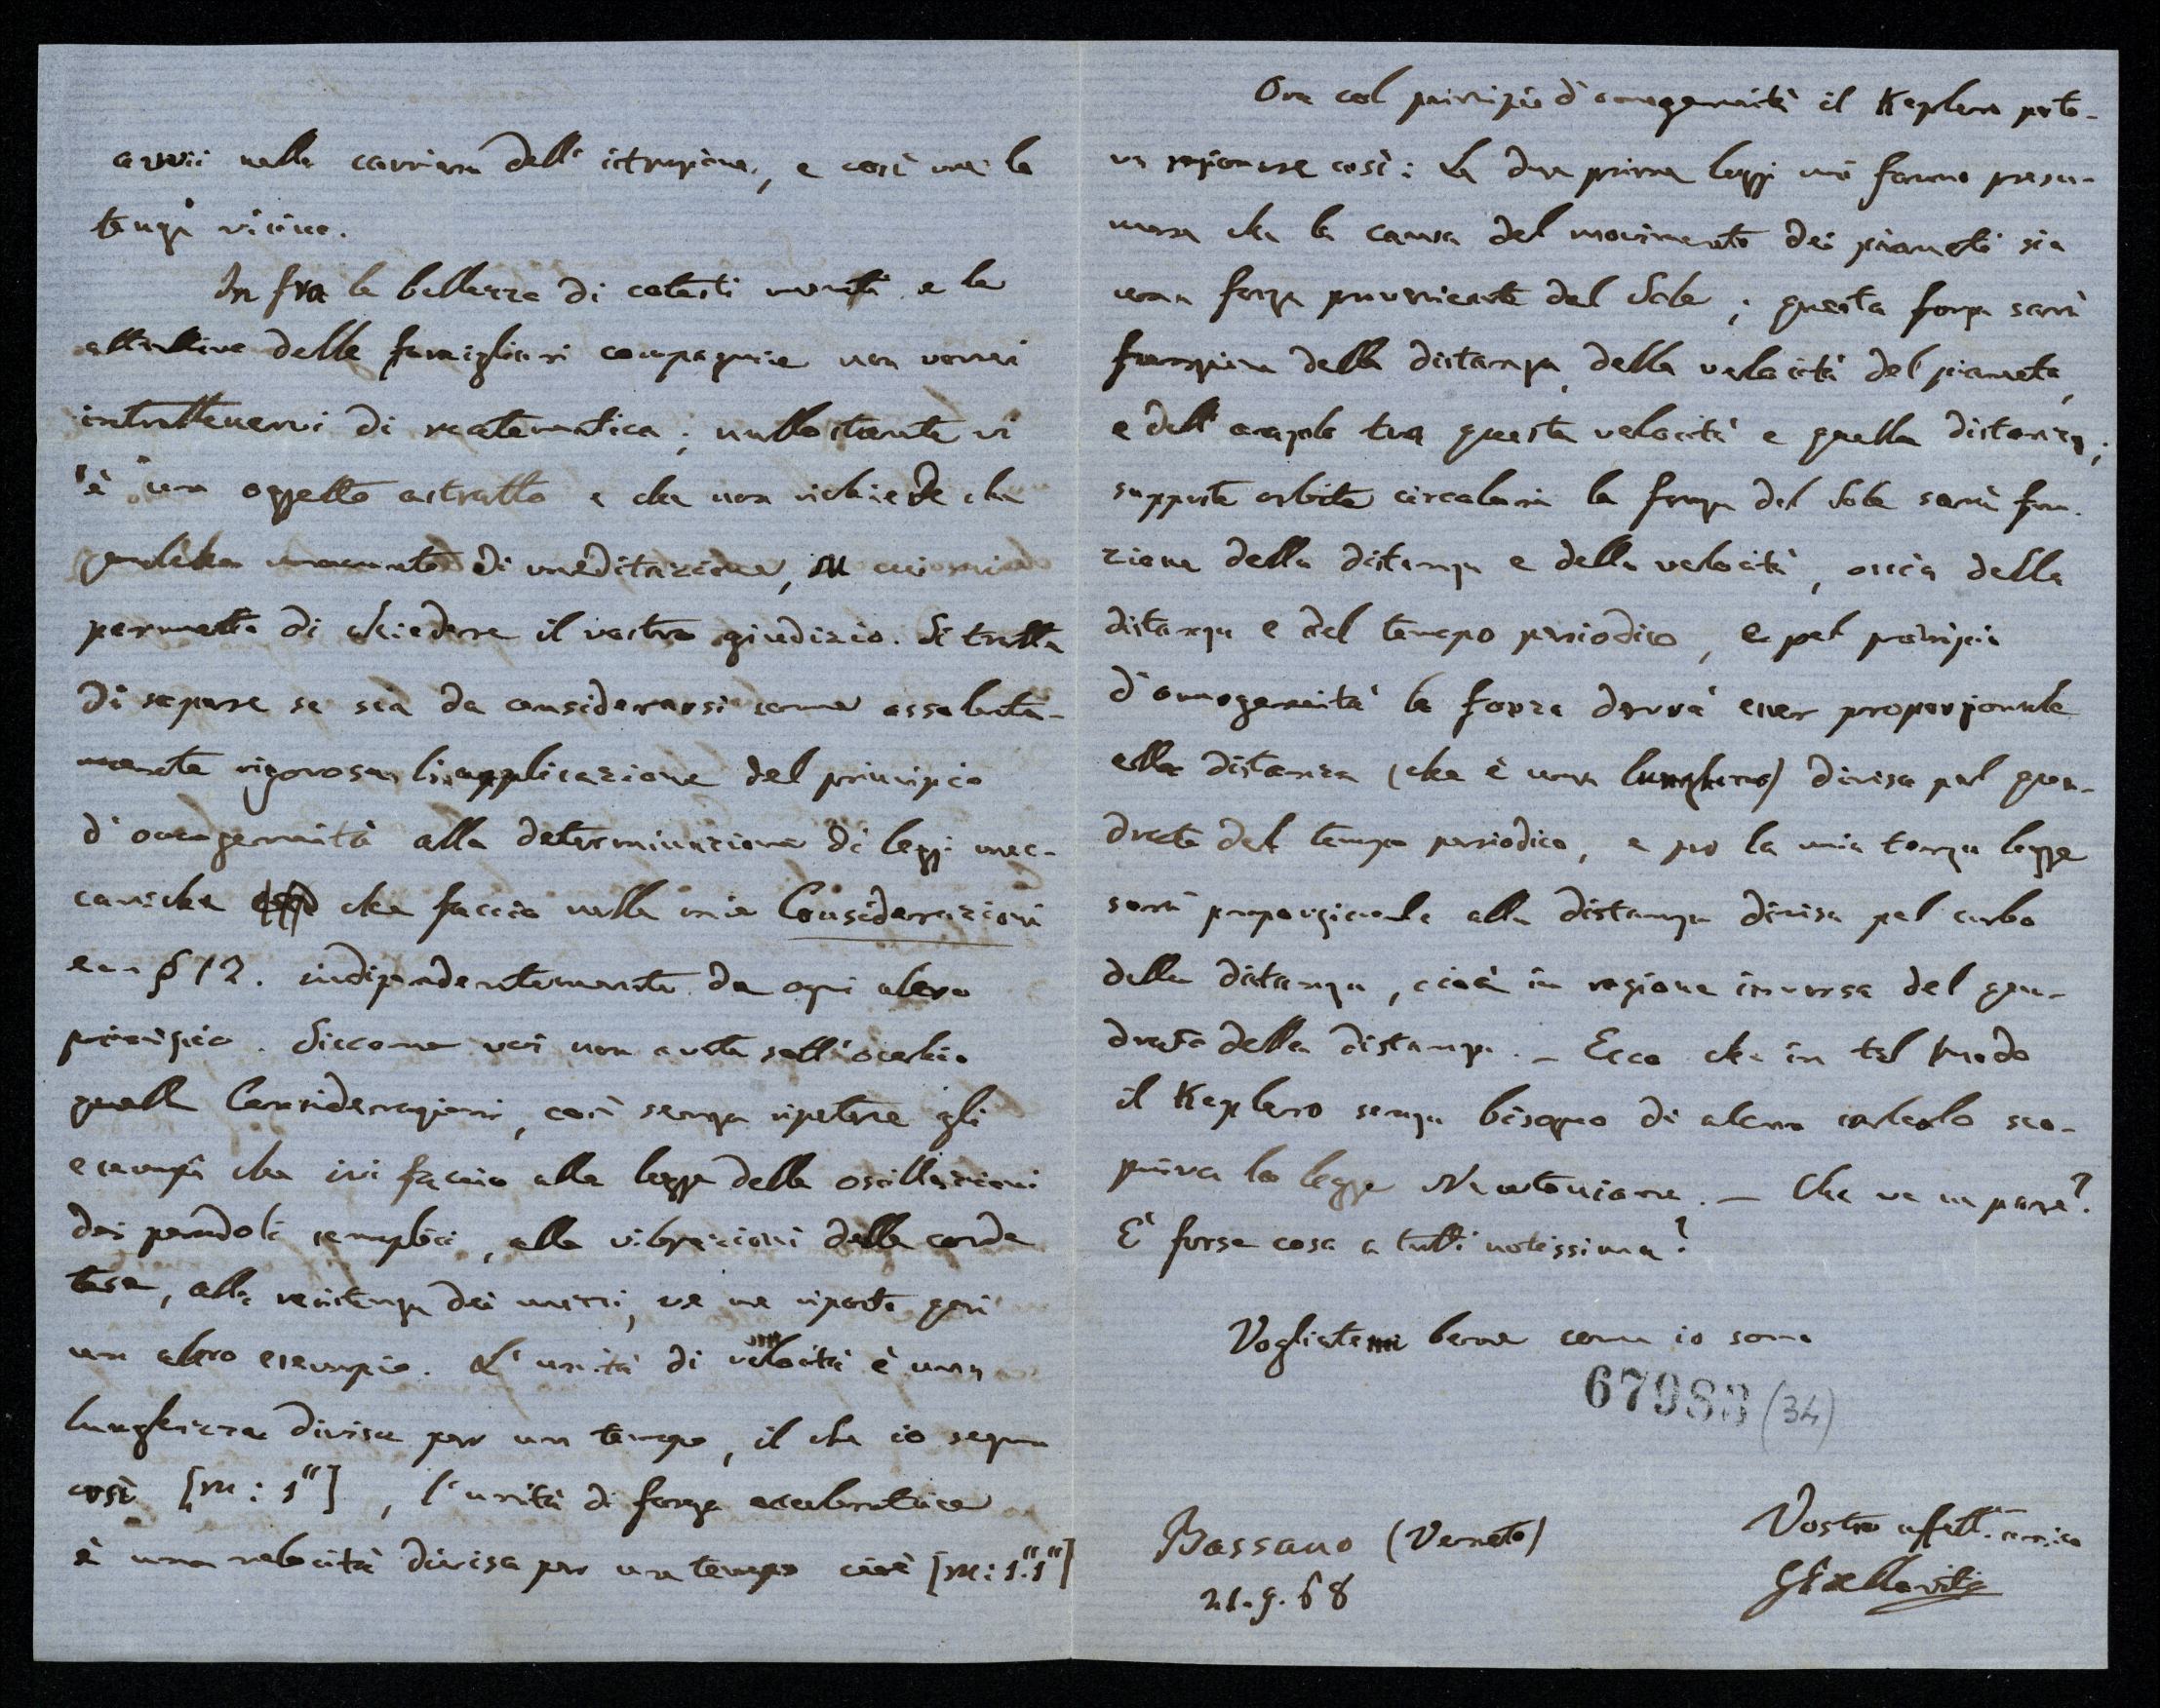 avvii nella carriera dell'istruzione, e così me lo
tenga vicino.
In fra le bellezze di cotesti monti e le
attrattive delle famigliari compagnie non vorrei
intrattenervi di matematica; nullostante vi
è un oggetto astratto e che non richiede che
qualche momento di meditazione, su cui mi
permetto di chiedere il vostro giudizio. Si tratta
di sapere se sia da considerarsi come assoluta-
mente rigorosa l'applicazione del principio
d'omogeneità alla determinazione di leggi mec-
caniche che faccio nelle mie Considerazioni
ecc § 12. indipendentemente da ogni altro
principio. Siccome voi non avete sott'occhio
quelle Considerazioni, così senza ripetere gli
esempi che ivi faccio alla legge delle oscillazioni
dei pendoli semplici, alle vibrazioni delle corde
tese, alla resistenza dei mezzi, ve ne riporto qui
un altro esempio. L'unità di velocità è una
lunghezza divisa per un tempo, il che io segno
così [m:1"], l'unità di forza acceleratrice
è una velocità divisa per un tempo cioè [m:1".1"]
Ora col principio d'omogeneità il Keplero pote-
va ragionare così: Le due prime leggi mi fanno presu-
mere che la causa del movimento dei pianeti sia
una forza proveniente dal Sole; questa forza sarà
funzione della distanza, della velocità del pianeta,
e dell'angolo tra questa velocità e quella distanza;
supposte orbite circolari la forza del Sole sarà fun-
zione della distanza e della velocità, ossia della
distanza e del tempo periodico, e pel principio
d'omogeneità la forza dovrà esser proporzionale
alla distanza (che è una lunghezza) divisa pel qua-
drato del tempo periodico, e per la mia terza legge
sarà proporzionale alla distanza divisa pel cubo
della distanza, cioè in ragione inversa del qua-
drato della distanza. – Ecco che in tal modo
il Keplero senza bisogno di alcun calcolo sco-
priva la legge Newtoniana. – Che ve ne pare?
È forse cosa a tutti notissima?
Vogliatemi bene come io sono
67983 (34)
Vostro affett. amico
GBellavitis
Bassano (Veneto)
21.9.68